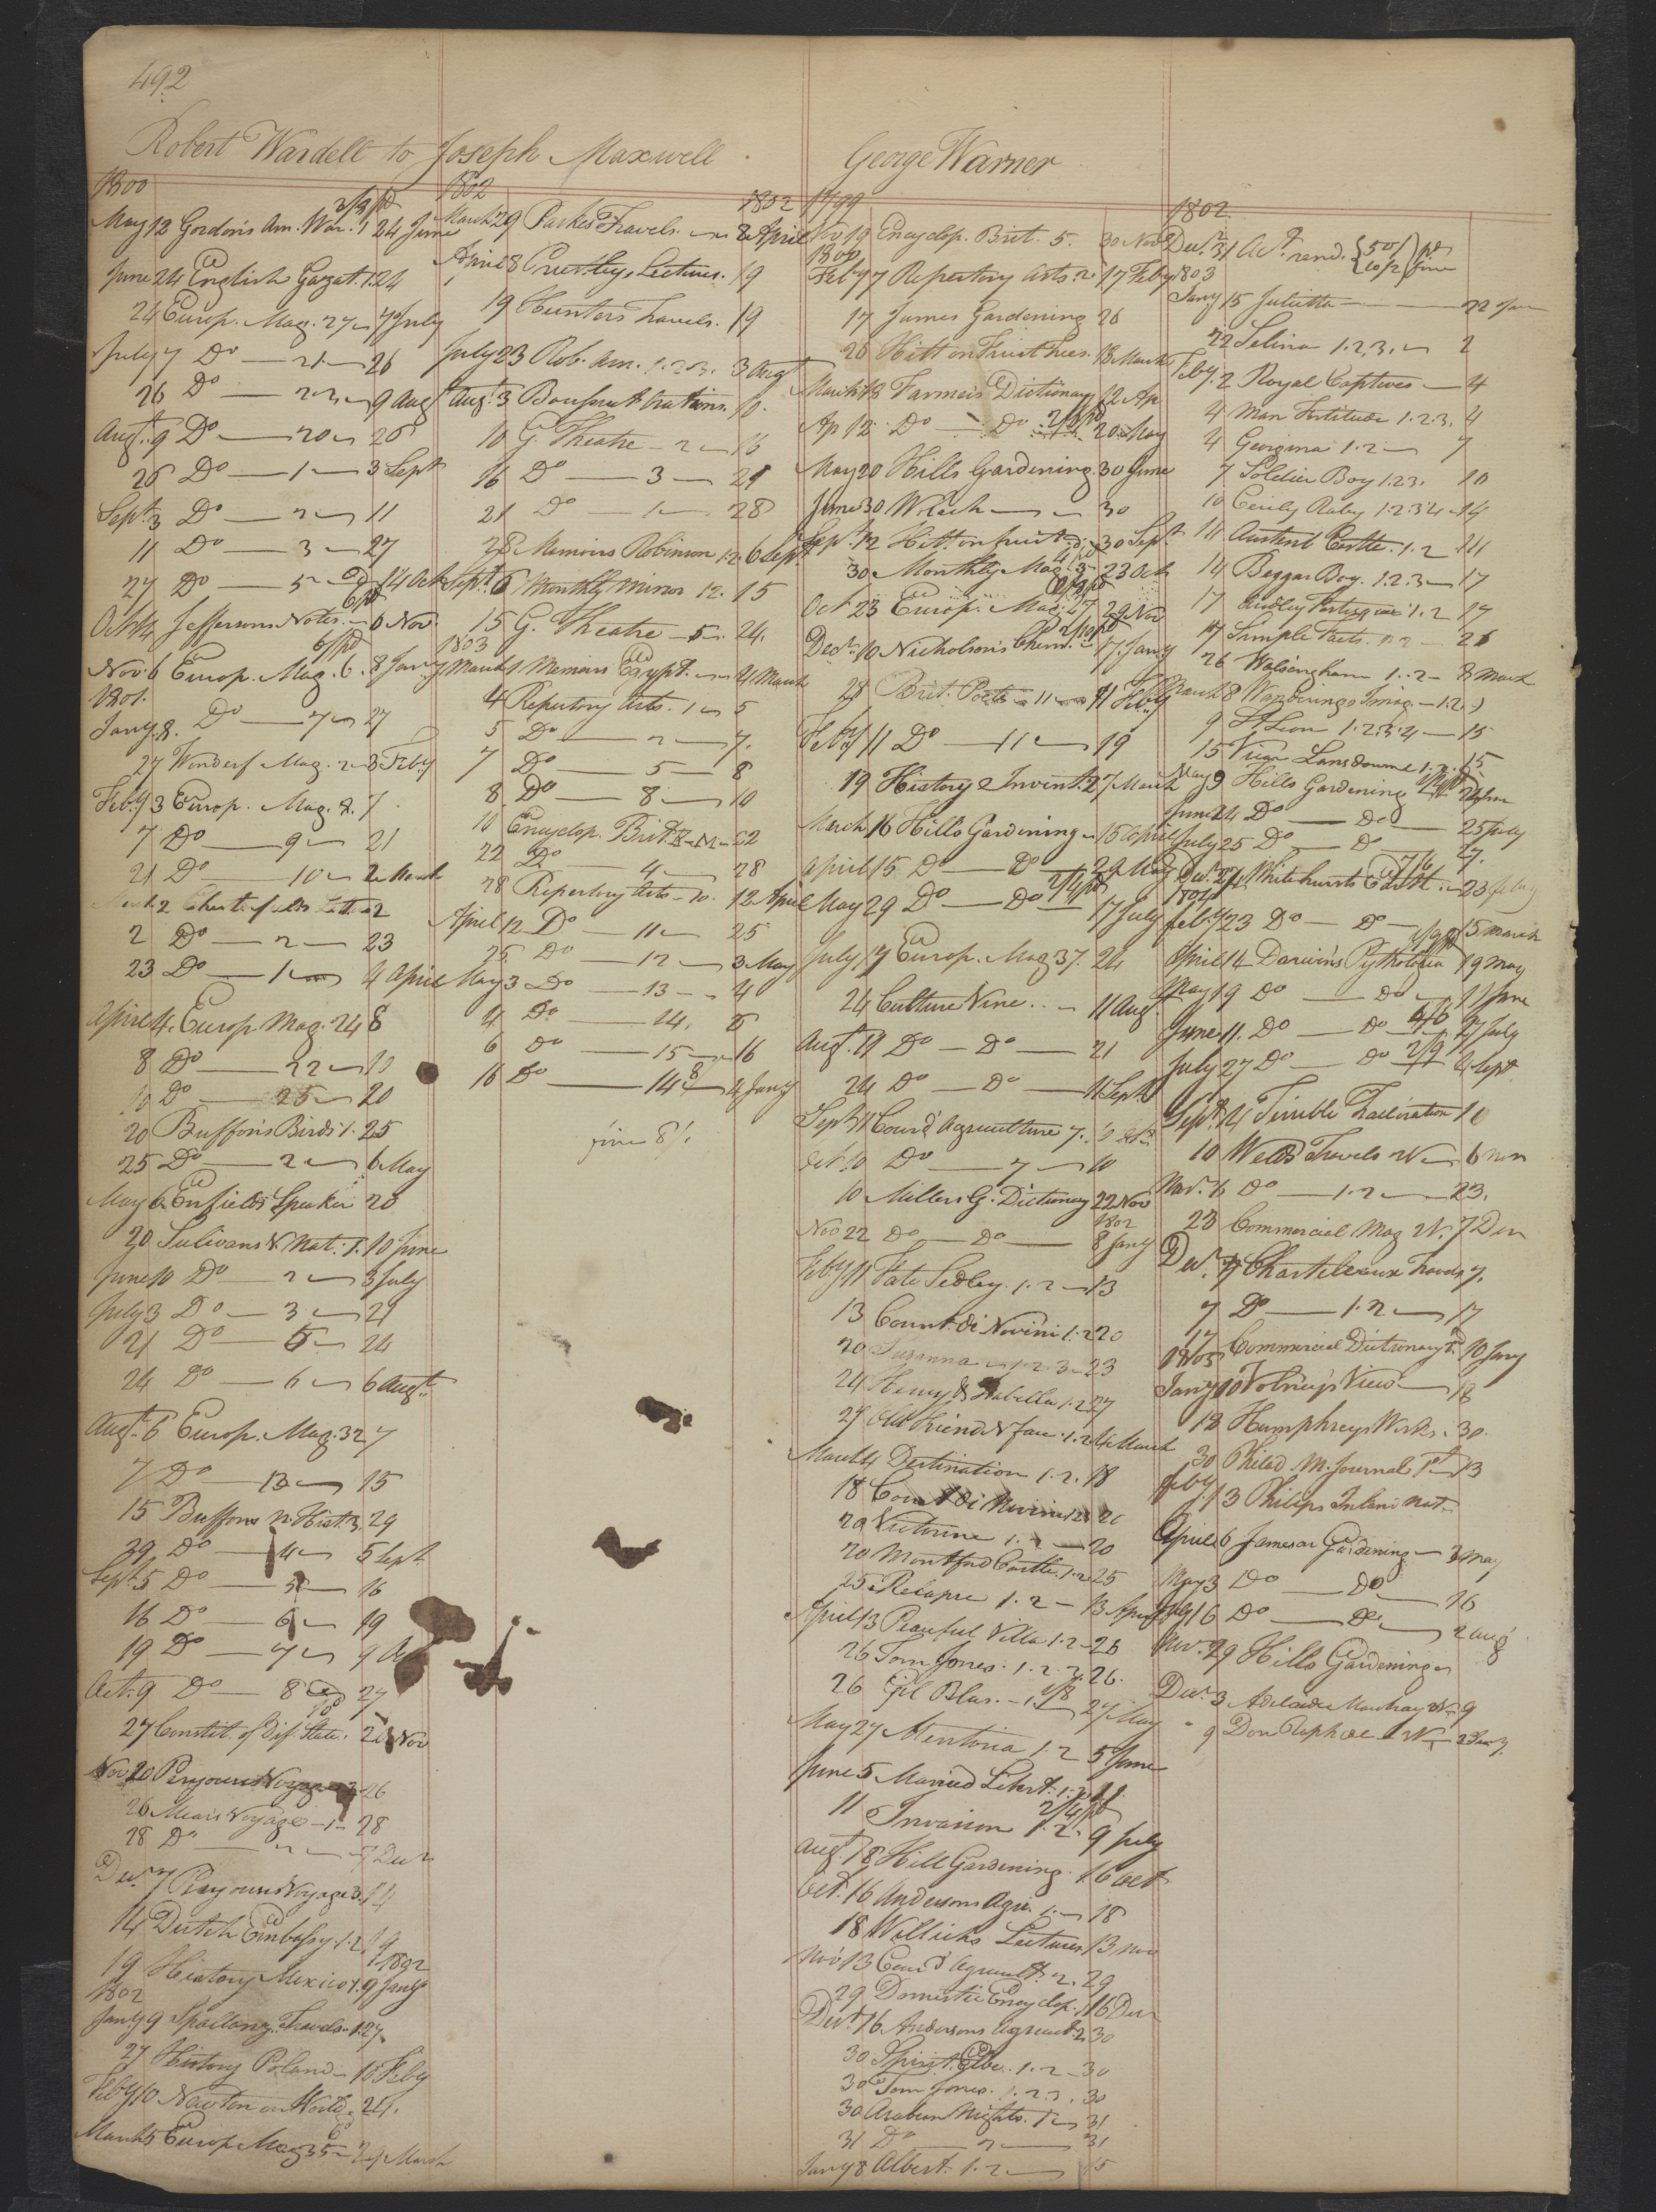 492
Robert Wardell to Joseph Maxwell
1800
2/9 pd
May 12 Gordon's Am. War. 1 24 June
June 24 English Gazat. 1. 24
24 Europ. Mag. 27 7 July
July 7 Do 21 26
26 Do 22 9 Aug
Augt. 9 Do 20 26
26 Do 1 3 Sept
Sept. 3 Do 2 11
11 Do 3 27
27 Do 5 14 Oct
Oct 14 Jeffersons Notes 6 Nov
6/ pd
Nov 6 Europ. Mag. 6. 8 Jany
1801.
Jany. 8. Do 7 27
27 Wonderf Mag. 2 3 Feby
Feby 3 Europ. Mag. 8. 7
7 Do 9 21
21 Do 10 2 March
2 Do 2 23
23 Do 1 4 April
April 4. Europ Mag. 24 8
8 Do 22 10
10 Do 25 20
20 Buffon's Birds 1. 25
25 Do 2 6 May
May 6 Enfields Speaker 20
20 Sulivans V. Nat. 1. 10 June
June 10 Do 2 3 July
July 3 Do 3 21
21 Do 5 24
24 Do 6 6 Augt.
Augt. 6 Europ. Mag. 32 7
7 Do 13 15
15 Buffons N. Hist. 3. 29
29 Do 4 5 Sept
Sept. 5 Do 5 16
16 Do 6 19
19 Do 7 9
Oct. 9 Do 8 27
27 Constit. of Dif. State. 20 Nov
Nov 20 26
26 Mears Voyage 1 28
28 Do 2 7 Decr
Decr. 7 Voyage 3. 14
14 Dutch Embassy. 1. 2 19
1802
19 History Mexico 1. 9 Jany
1802
Jany 9 Spallanz. Travels 1. 27
27 History Poland 10 Feby
Feby 10 Newton on World
March 5 Europ Mag 35 29 March
1802
1802
March 29 Parkes Travels. 8 April
April 8 Priestleys Lectures. 19
19 Hunters Travels. 19
July 23 Rob. Am. 1. 2. 3. 3 Augt
Aug. 3 10.
10 G. Theatre 2 16
16 Do 3 21
21 Do 1 28
28 Memoirs Robinson 1. 2. 6 Sept
Sept. 6 Monthly Mirror 12. 15
15 G. Theatre 5. 24.
1803
March 1 Memoirs Egypt. 4 March
4 Repertory Arts. 1 5
5 Do 2 7.
7 Do 5 8
8 Do 8 10
10 Encyclop. Brit. 22
22 Do 4 28
28 Repertory Arts 10. 12 April
April 12 Do 11 25
25 Do 12 3 May
May 3 Do 13 4
4 Do 14. 6
6 Do 15 16
16 Do 14 8 4 Jany
fine 8/.
George Warner
1799
Nov 19 Encyclop. Brit. 5. 30 Nov
1800
Feby 7 Repertory Arts. 2. 17 Feby
17 James Gardening 26
26 Hitt on Fruit Trees. 18 March
March 18 Farmer's Dictionary 12 Ap
Ap 12 Do Do 20 May
May 20 Hills Gardening. 30 June
June 30 30
Sept. 12 Hitt on fruit 30 Sept.
30 Monthly Mag. 3 23 Oct
Oct 23 Europ. Mag. 27 29 Nov
2/10 pd
Decr. 10 Nicholson's Chem. 17 Jany
28 Brit. Poets 11 11 Feby
Feby 11 Do 11 19
19 History Invent. 2 7 March
March 16 Hill's Gardening 15 April
April 15 Do Do 29 May
2/4 pd
May 29 Do Do 17 July
July 17 Europ. Mag 37. 24
24 Culture Vine 11 Aug.
Augt. 11 Do Do 21
24 Do Do 11 Sept
Sept 11 Cours d'Agriculture 7.
Oct 10 Do 7 10
10 Millers G. Dictionary 22 Nov
1802
Nov 22 Do Do 8 Jany
Feby 11 Fate Sedley. 1. 2 13
13 Count di Novini 1. 2 20
20 Suzanna 1. 2. 3 23
24 Henry & Isabella 1. 2 27
27 Old Friend N Face 1. 2 4 March
March 4 Destination 1. 2. 18
18 Count di Novini 1 2 20
20 Victorine 1. 20
20 Montford Castle. 1. 2 25
25 Relapse 1. 2 13 April
April 13 Peaceful Villa 1. 2 26
26 Tom Jones. 1. 2. 3. 26.
26 Gil Blas. 27 May
May 27 Mentoria 1. 2 5 June
June 5 Married Libert. 1. 2 11
2/4 pd
11 Invasion 1. 2. 9 July
Augt. 18 Hill Gardening. 16 Oct
Oct. 16 Andersons Agri. 1. 18
18 Willichs Lectures 13 Nov
Nov 13 Cours d'Agricult. 2. 29
29 Domestic Encyclop. 1 16 Decr
Decr. 16 Andersons Agricult. 2 30
30 Spirit Elbe. 1. 2 30
30 Tom Jones. 1. 2 3. 30
30 Arabian Nights. 1 31
31 Do 2 31
Jany 8 Albert. 1. 2 15
1802
Decr. 31 Act. rend. { 50/ 10/2 } pd fine
1803
Jany 15 Juliette 22 Jan
22 Selina 1. 2. 3. 2
Feby. 2 Royal Captives 4
4 Man Fortitude 1. 2. 3. 4
4 Georgina 1. 2 7
7 Soldier Boy 1. 2 3. 10
10 Cecily Raby 1. 2 3 4 14
14 Austenb Castle. 1. 2 14
14 Beggar Boy. 1. 2. 3 17
17 1. 2 17
17 Simple Facts. 1. 2 26
26 Walsingham 1. 2 8 March
March 8 Wanderings Imag. 1. 2. 9
9 St. Leon 1. 2. 3. 4 15
15 Vicar Lansdowne 1. 2. 15
May 9 Hills Gardening
June 24 Do Do 25 July
July 25 Do Do 27.
7/6
Decr. 27 Whitehursts Earth. 23 feby
1804
feby 23 Do Do 15 March
April 14 Darwins Pythologia 19 May
May 19 Do Do 11 June
June 11. Do Do 27 July
2/9
July 27 Do Do 4 Sept
Sept. 4 Terrible Tractoration 10
10 Welds Travels 6 Nov
Nov. 6 Do 1. 2 23.
23 Commercial Mag N. 7 Decr
Decr. 7 Chastelleaux Travels 7.
7 Do 1. 2 17
17 Commercial Dictionary 10 Jany
1805
Jany 10 Volney's View 18
18 Humphreys Works. 30.
30 Philad. M. Journal 1 13
feby 13 Philips Inland Nat.
April 6 James on Gardening 3 May
May 3 Do Do 16
July 16 Do Do 2 Aug
Nov. 29 Hills Gardening
Decr. 3 9
9 Don Raphael